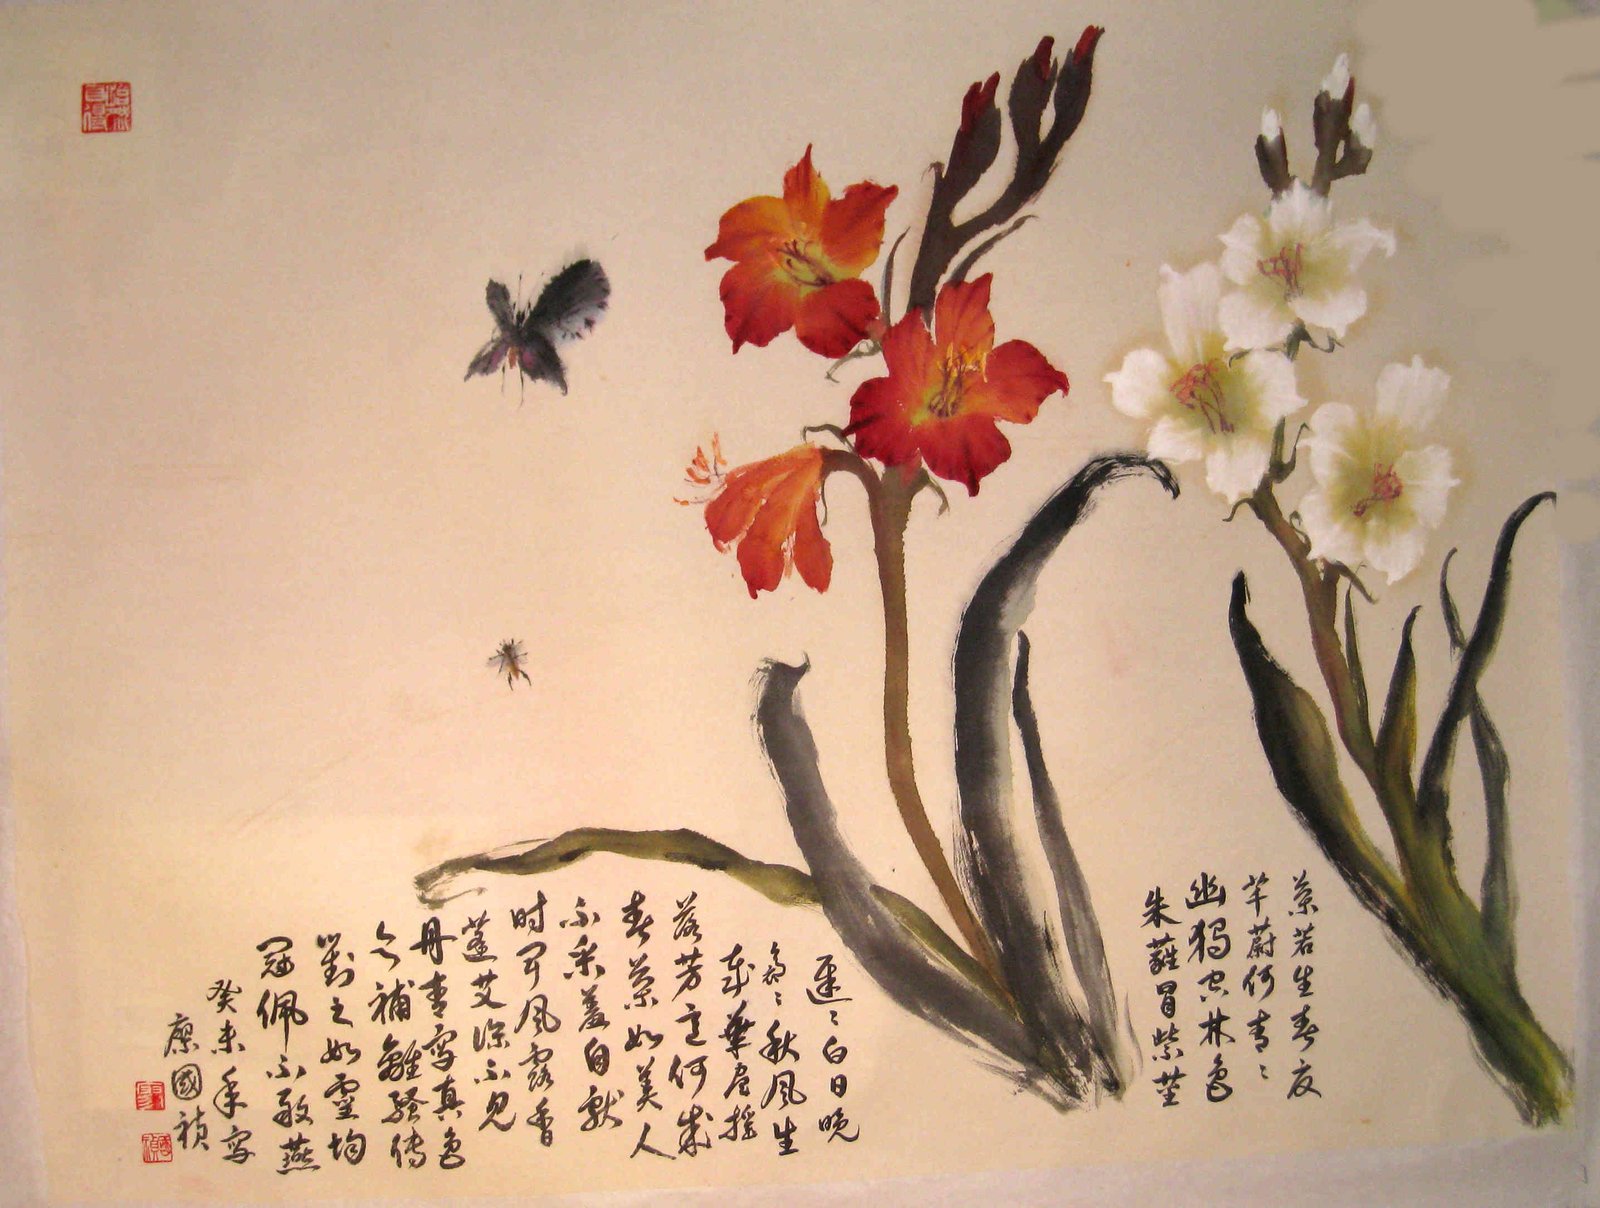 蘭若生春夏
芊蔚何青〻
幽獨空林色
朱蕤冒紫莖
遲〻白日晚
裊〻秋風生
歲華盡摇
落芳意何成
春蘭如美人
不采羞自獻
时聞風露香
蓬艾深不見
丹青寫真色
欲補離騷傳
對之如靈均
冠佩不敢燕
癸未年寫
廖國禎